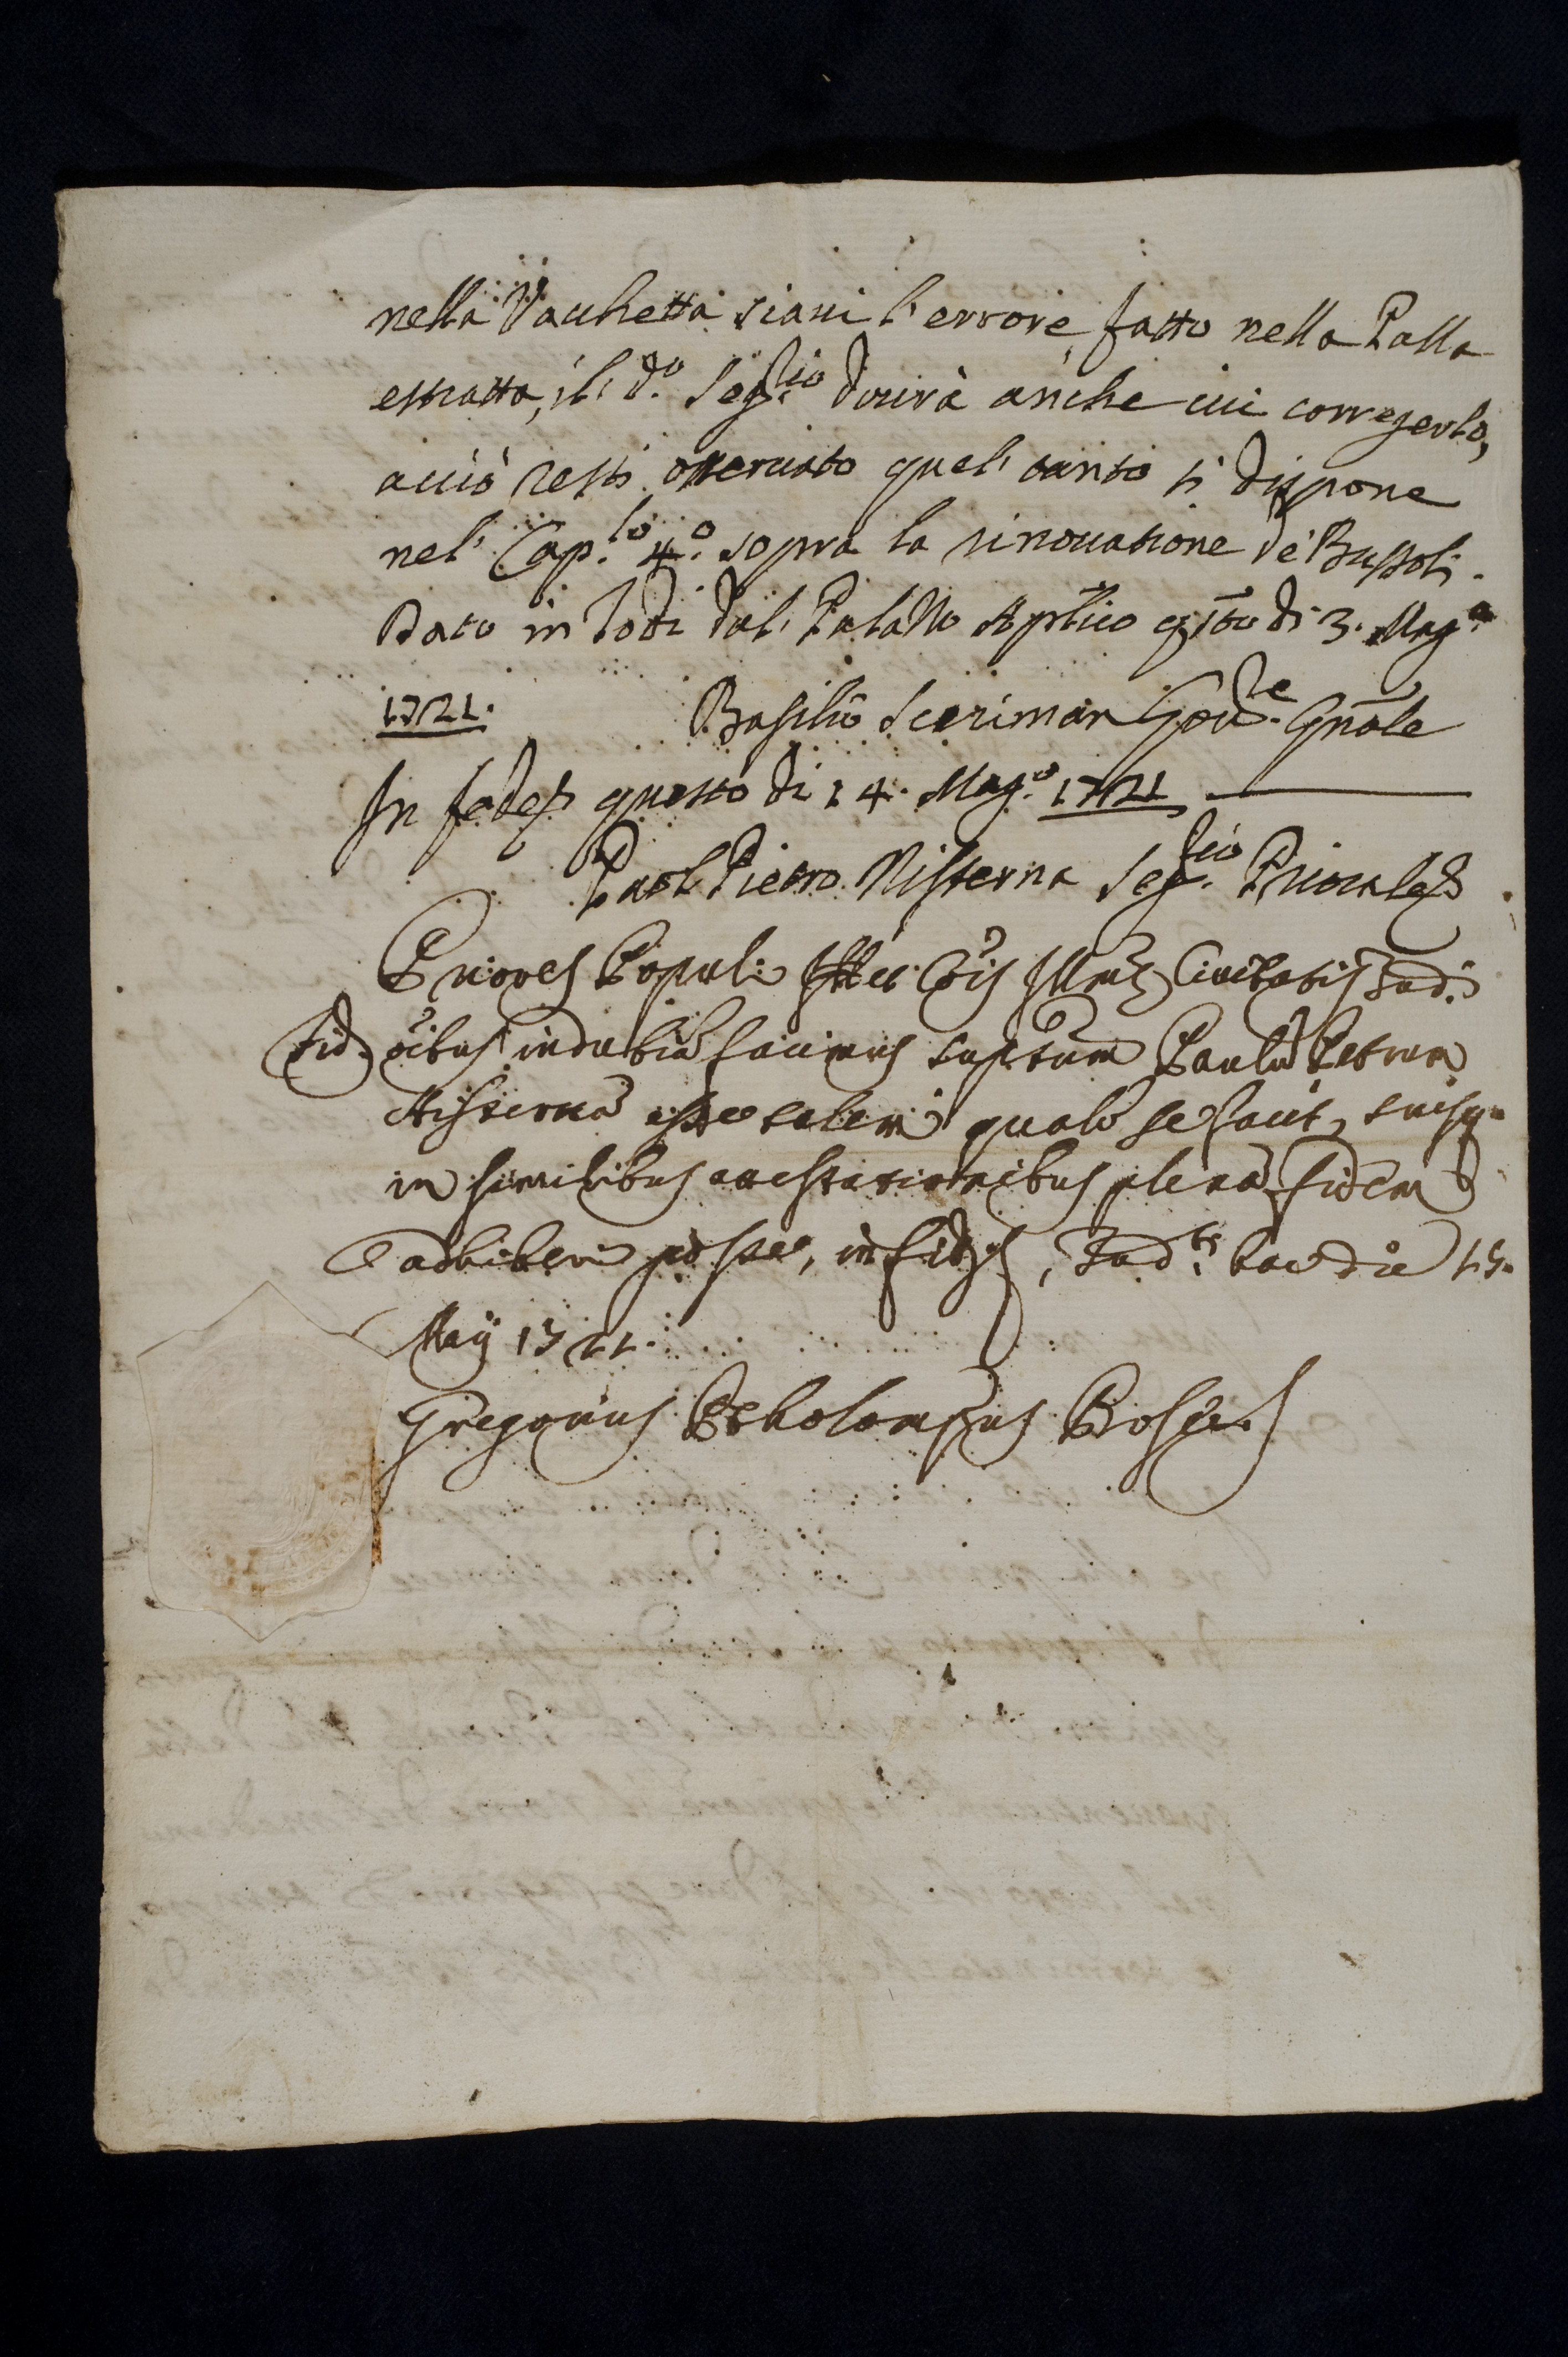 nella Vacchetta siavi l'errore fatto nella Palla
estratta, il d.o Seg.rio dovrà anche ivi corregerlo,
acciò resti osservato quel tanto si dispone
nel Cap.lo 4.o sopra la rinovatione de Bussoli.
Dato in Todi dal Palazzo Apltico qsto di 3. Mag.o
1721.
Basilio Sceriman Gov.re Gnale
In fede questo di 14. Mag.o 1721
Paol Pietro Nisterna Seg.rio Priorale
Priores Populi et Cois Civitatis Tud.
Fid. oibus indubia facimus suptum Paulu Petrum
Nisterna esse talem quale se facit, suisq
in similibus attestationibus plena fidem
adhiberi posse, in fid, Tud.ti hac die 15.
Maij 1721.
Gregorius